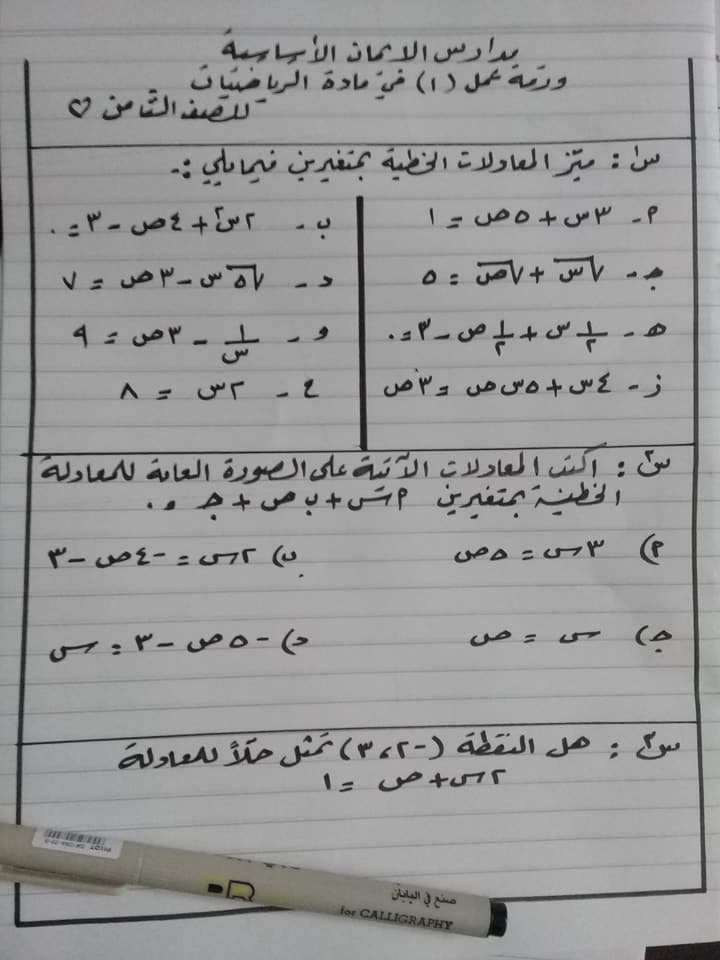 مدارس الايمان الأساسية
ورقة عمل (١) في مادة الرياضيات
للصف الثامن ♡
س١: ميّز المعادلات الخطية بمتغيرين فيما يلي :-
٣س + ٥ص = ١ -أ
ب- ٢س٢ + ٤ص - ٣ = ٠
ج- √س + √ص = ٥
د- √٥ س - ٣ص = ٧
هـ- ١/٢ س + ١/٢ ص - ٣ = ٠
و- ١/س - ٣ص = ٩
ز- ٤س + ٥س ص = ٣ص
ح- ٢س = ٨
س٢: اكتب المعادلات الآتية على الصورة العامة للمعادلة
الخطية بمتغيرين أس + ب ص + جـ = ٠
أ) ٣س = ٥ص
ب) ٢س = -٤ص - ٣
ج) س = ص
د) -٥ص - ٣ = س
س٣: هل النقطة (-٢، ٣) تمثل حلاً للمعادلة
٢س + ص = ١
صنع في اليابان
for CALLIGRAPHY